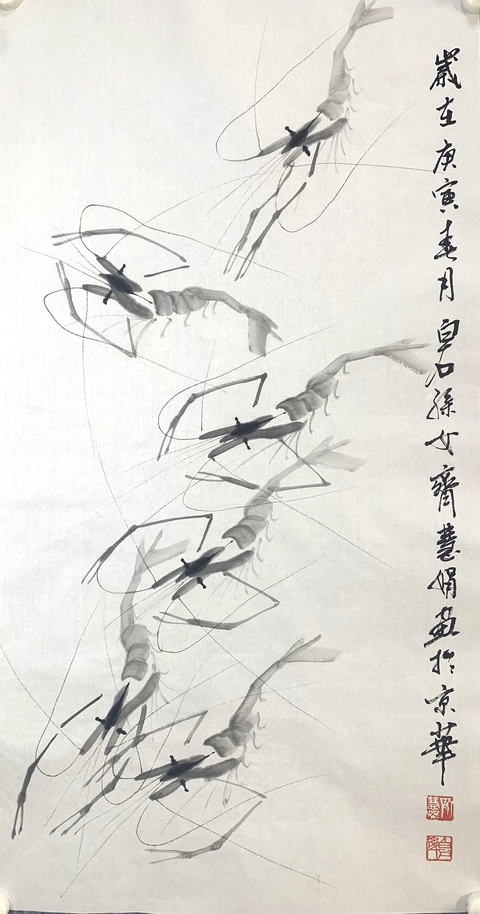 歲在庚寅春月白石孫女齊慧娟畫於京華